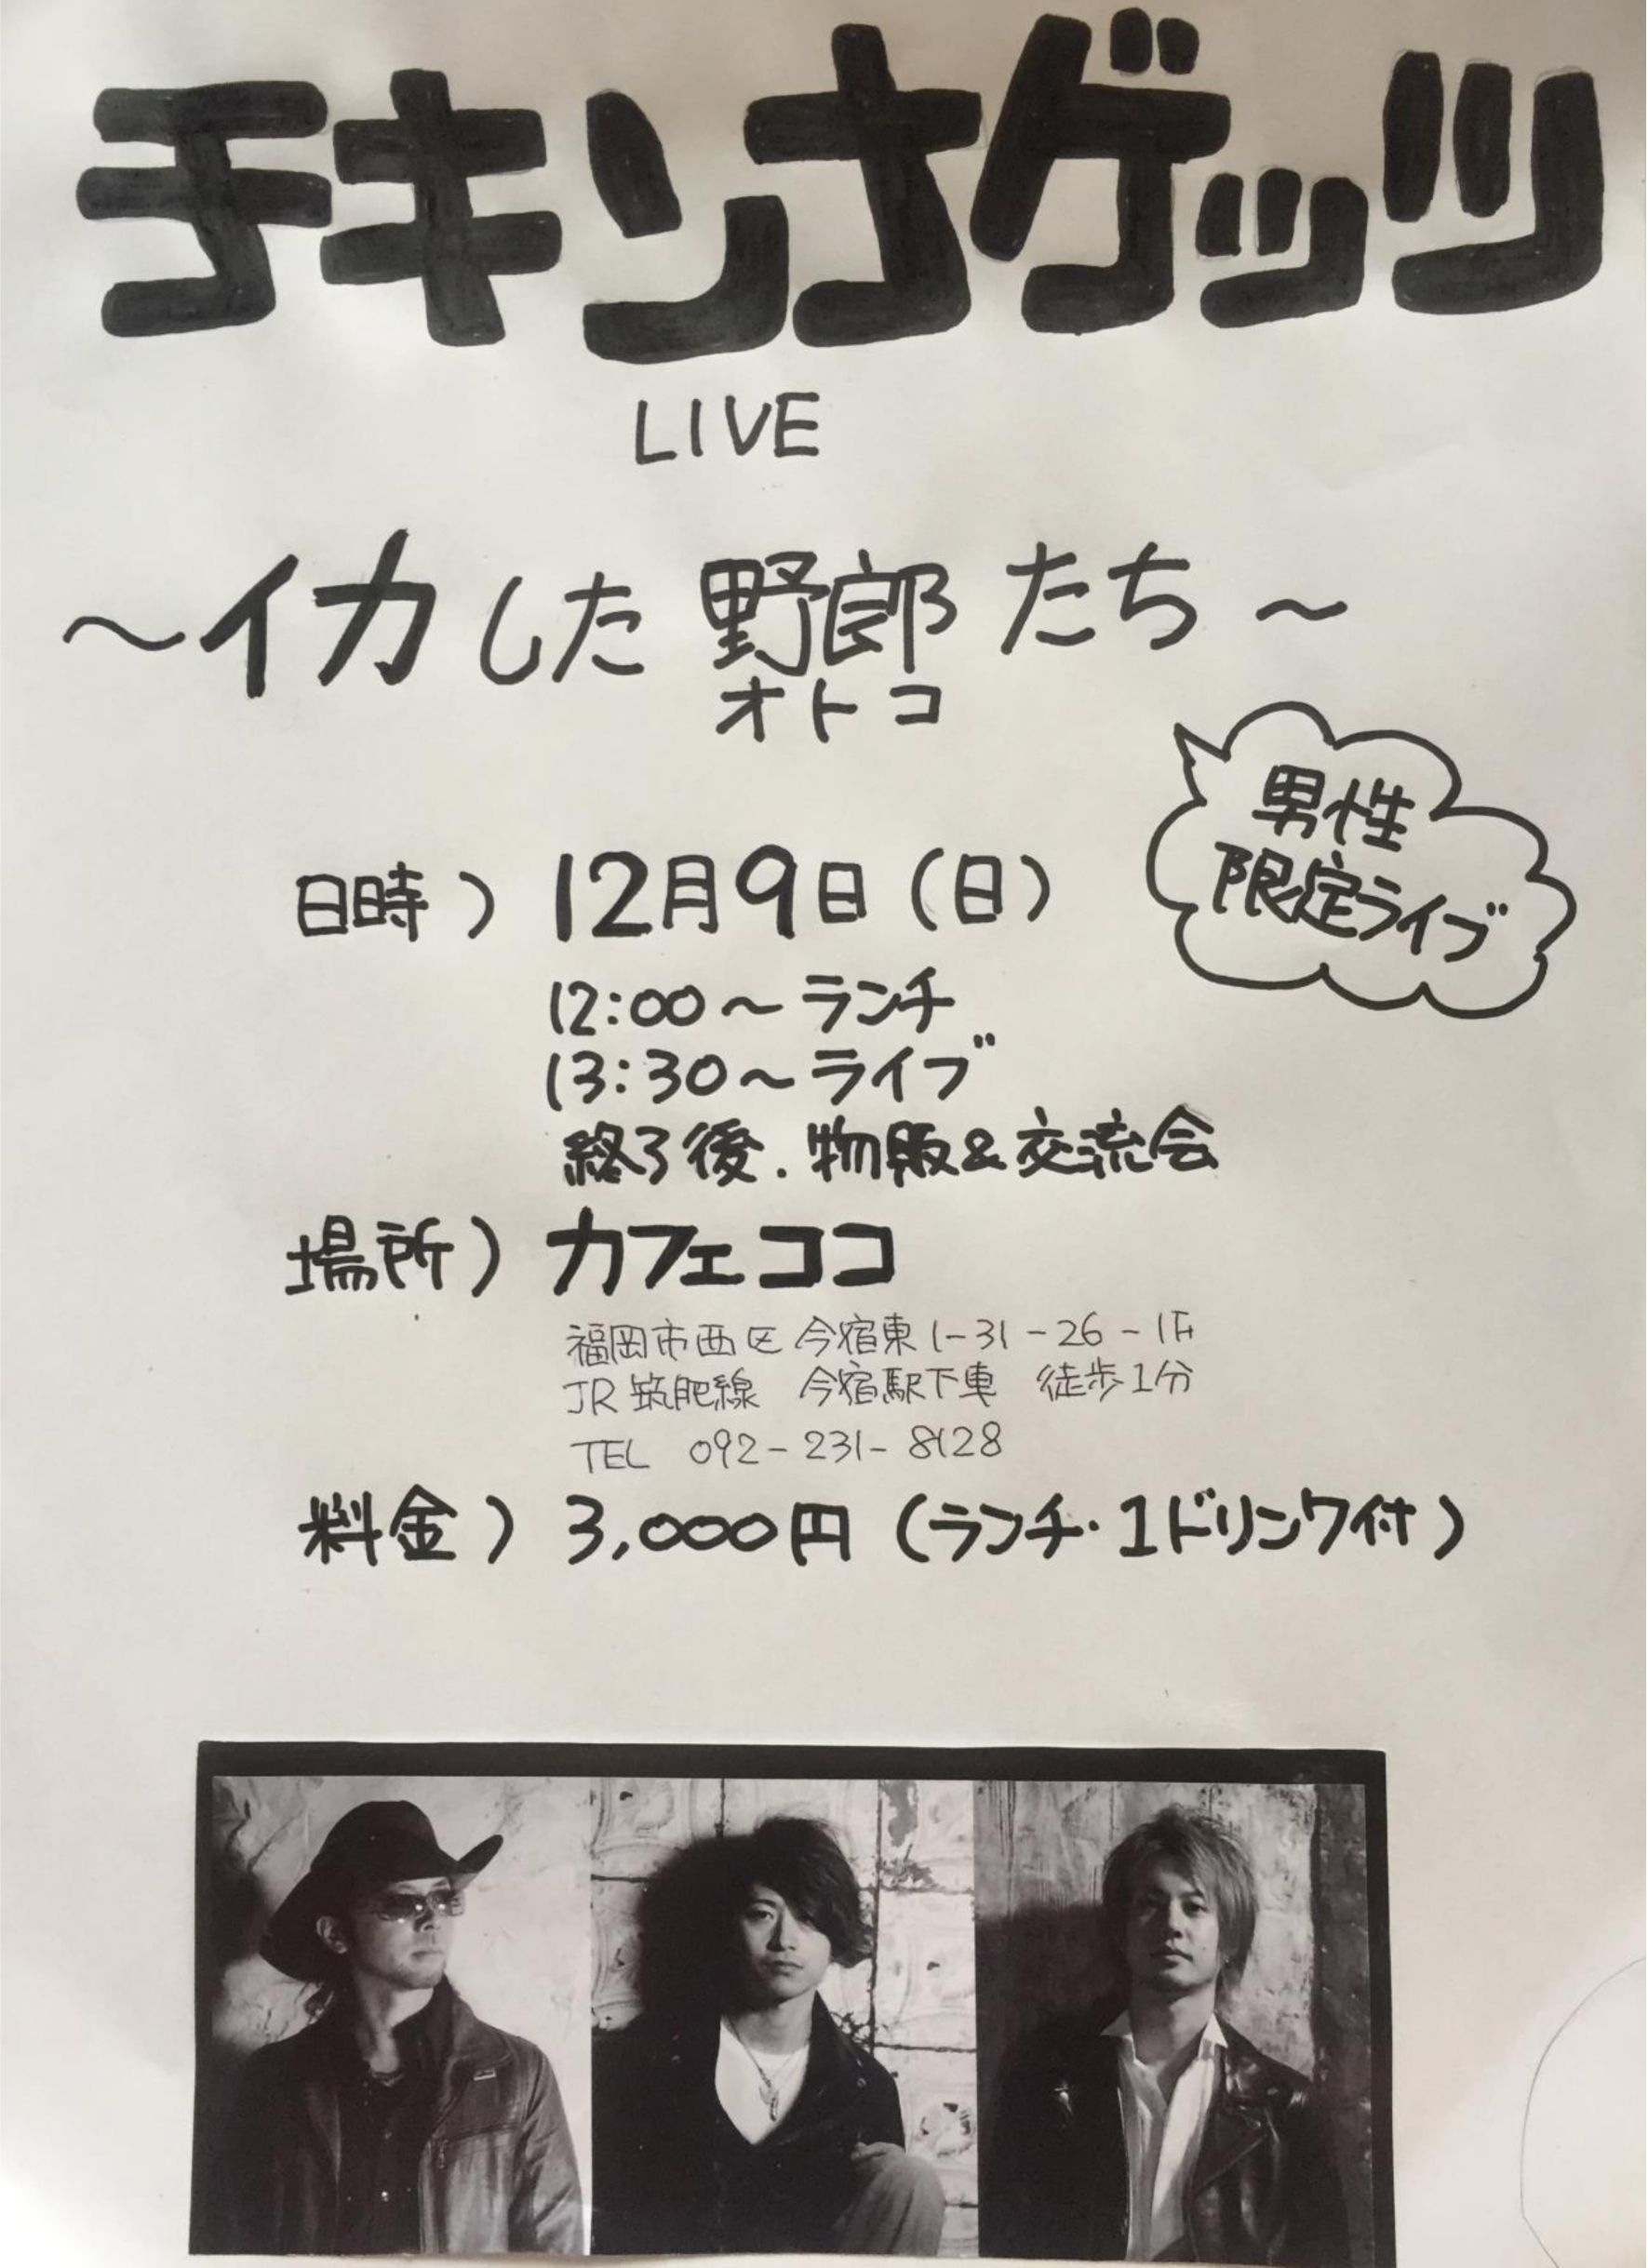 チキンナゲッツ
LIVE
～イカした野郎たち～
オトコ
男性
限定ライブ
日時）12月9日（日）
12:00～ランチ
13:30～ライブ
終了後．物販&交流会
場所）カフェココ
福岡市西区今宿東1-31-26-1F
JR筑肥線　今宿駅下車　徒歩1分
TEL 092-231-8128
料金）3,000円（ランチ・1ドリンク付）